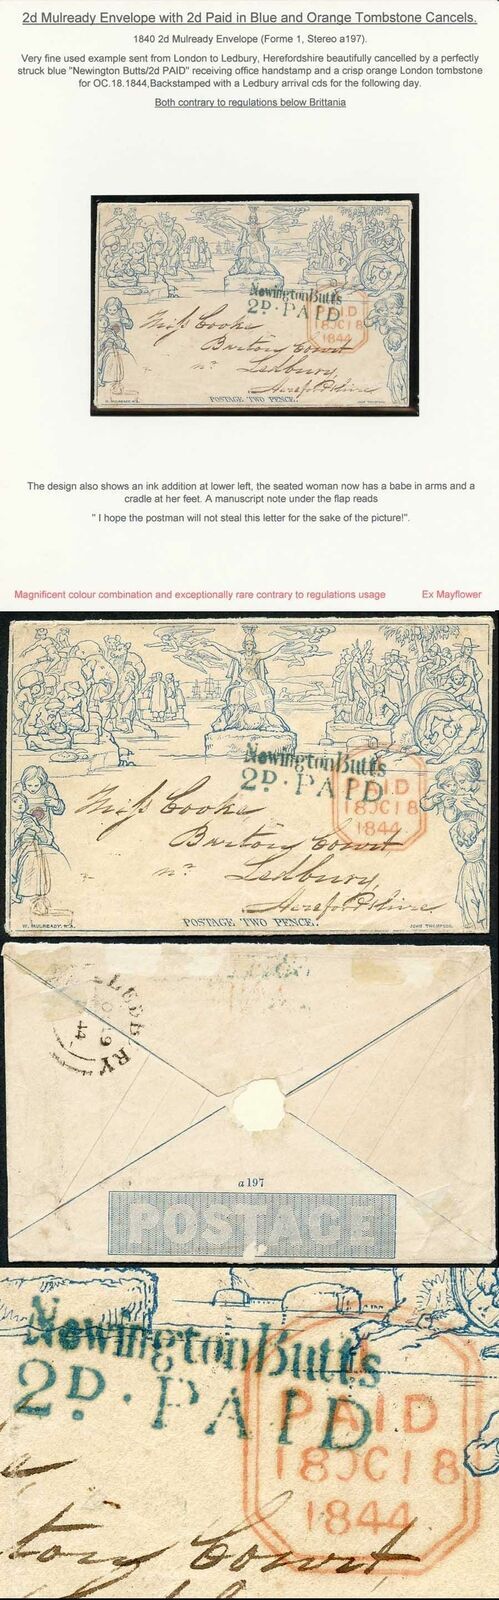 2d Mulready Envelope with 2d Paid in Blue and Orange Tombstone Cancels.
1840 2d Mulready Envelope (Forme 1, Stereo a197).
Very fine used example sent from London to Ledbury, Herefordshire beautifully cancelled by a perfectly
struck blue "Newington Butts/2d PAID" receiving office handstamp and a crisp orange London tombstone
for OC.18.1844,Backstamped with a Ledbury arrival cds for the following day.
Both contrary to regulations below Brittania
Newington Butts
2D. PAID
PAID
18OC18
1844
Miss Cooke
Barton Court
nr. Ledbury,
Herefordshire
W. MULREADY. R.A.
POSTAGE TWO PENCE.
JOHN THOMPSON.
The design also shows an ink addition at lower left, the seated woman now has a babe in arms and a
cradle at her feet. A manuscript note under the flap reads
" I hope the postman will not steal this letter for the sake of the picture!".
Magnificent colour combination and exceptionally rare contrary to regulations usage Ex Mayflower
Newington Butts
2D. PAID
PAID
18OC18
1844
Miss Cooke
Barton Court
nr. Ledbury,
Herefordshire
W. MULREADY. R.A.
POSTAGE TWO PENCE.
JOHN THOMPSON.
LEDBURY
a 197
POSTAGE
Newington Butts
2D. PAID
PAID
18OC18
1844
ton Court